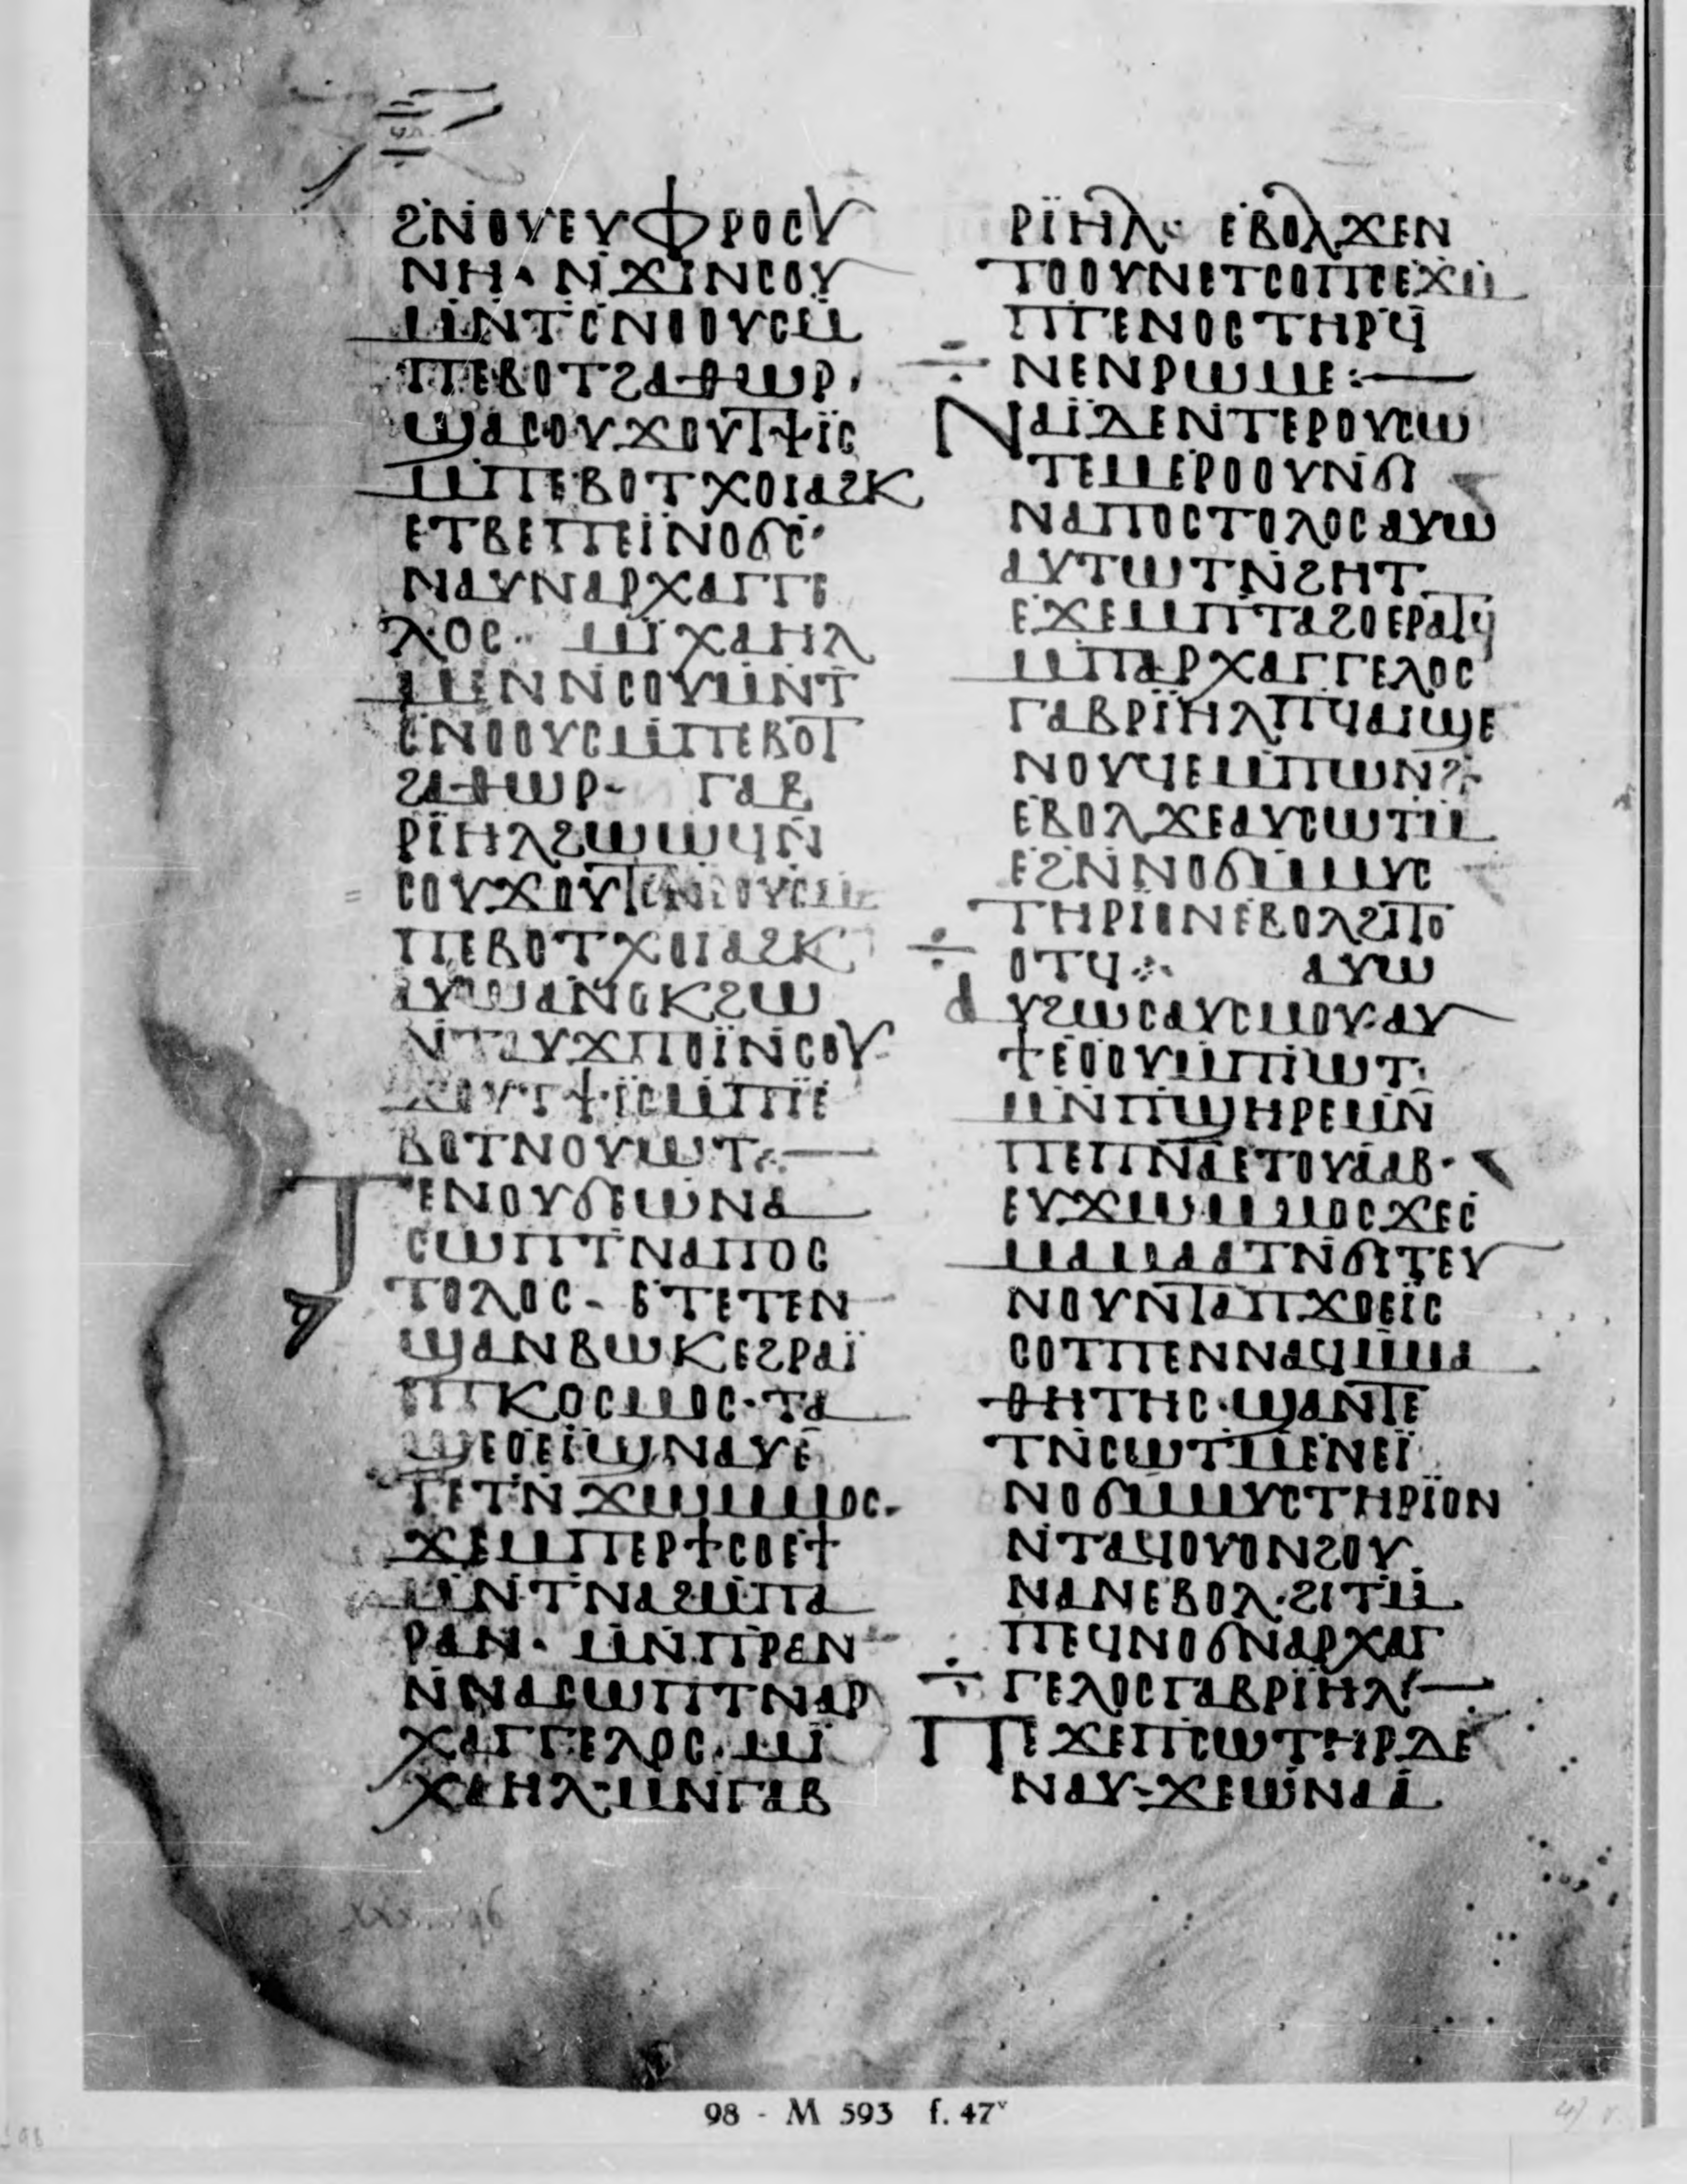 ϩⲛⲟⲩⲉⲩⲫⲣⲟⲥⲩ
ⲛⲏ· ⲛϫⲓⲛⲥⲟⲩ
ⲙⲛⲧⲥⲛⲟⲟⲩⲥⲙ̅
ⲡⲉⲃⲟⲧϩⲁⲑⲱⲣ·
ϣⲁⲥⲟⲩϫⲟⲩⲧϯⲓ̈ⲥ
ⲙⲡⲉⲃⲟⲧⲭⲟⲓⲁϩⲕ
ⲉⲧⲃⲉⲡⲉⲓ̈ⲛⲟϭⲥ·
ⲛⲁⲩⲛⲁⲣⲭⲁⲅⲅⲉ
ⲗⲟⲥ·· ⲙⲓ̈ⲭⲁⲏⲗ
ⲙⲉⲛⲛⲥⲟⲩⲙⲛⲧ
ⲥⲛⲟⲟⲩⲥⲙⲡⲉⲃⲟⲧ
ϩⲁⲑⲱⲣ· ⲅⲁⲃ
ⲣⲓ̈ⲏⲗϩⲱⲱϥⲛ̅
ⲥⲟⲩϫⲟⲩⲧⲥⲛⲟⲟⲩⲥⲙ
ⲡⲉⲃⲟⲧⲭⲟⲓⲁϩⲕ
ⲁⲩⲱⲁⲛⲟⲕϩⲱ
ⲛⲧⲁⲩϫⲡⲟⲓ̈ⲛⲥⲟⲩ
ϫⲟⲩⲧϯⲓ̈ⲥⲙⲡⲓ̈ⲉ
ⲃⲟⲧⲛⲟⲩⲱⲧ:—
Ⲧⲉⲛⲟⲩϭⲉⲱⲛⲁ
ⲥⲱⲡⲧⲛⲁⲡⲟⲥ
ⲧⲟⲗⲟⲥ· ⲉⲧⲉⲧⲉⲛ
ϣⲁⲛⲃⲱⲕⲉϩⲣⲁⲓ̈
ⲡⲕⲟⲥⲙⲟⲥ·ⲧⲁ
ϣⲉⲟⲉⲓ̈ϣⲛⲁⲩⲉ
ⲧⲉⲧⲛ̅ϫⲱⲙⲙⲟⲥ·
ϫⲉⲙⲡⲉⲣϯⲥⲟⲉⲧ
ⲙⲛⲧⲛⲁϩⲙⲡⲁ
ⲣⲁⲛ· ⲙⲛⲡⲣⲁⲛ
ⲛⲛⲁⲥⲱⲡⲧⲛⲁⲣ
ⲭⲁⲅⲅⲉⲗⲟⲥ·ⲙⲓ̈
ⲭⲁⲏⲗ·ⲙⲛⲅⲁⲃ
ⲣⲓ̈ⲏⲗ· ⲉⲃⲟⲗϫⲉⲛ
ⲧⲟⲟⲩⲛⲉⲧⲥⲟⲡⲥⲉϫⲙ
ⲡⲅⲉⲛⲟⲥⲧⲏⲣϥ
ⲛⲉⲛⲣⲱⲙⲉ:—
Ⲛⲁⲓ̈ⲇⲉⲛⲧⲉⲣⲟⲩⲥⲱ
ⲧⲉⲙⲉⲣⲟⲟⲩⲛϭⲓ
ⲛⲁⲡⲟⲥⲧⲟⲗⲟⲥⲁⲩⲱ
ⲁⲩⲧⲱⲧⲛϩⲏⲧ
ⲉϫⲉⲙⲡⲧⲁϩⲟⲉⲣⲁⲧϥ
ⲙⲡⲁⲣⲭⲁⲅⲅⲉⲗⲟⲥ
ⲅⲁⲃⲣⲓ̈ⲏⲗⲡϥⲁⲓϣⲉ
ⲛⲟⲩϥⲉⲙⲡⲱⲛϩ·
ⲉⲃⲟⲗϫⲉⲁⲩⲥⲱⲧⲙ
ⲉϩⲛⲛⲟϭⲙⲙⲩⲥ
ⲧⲏⲣⲓⲟⲛⲉⲃⲟⲗϩⲓⲧⲟ
ⲟⲧϥ·:· ⲁⲩⲱ
ⲁⲩϩⲱⲥⲁⲩⲥⲙⲟⲩ·ⲁⲩ
ϯⲉⲟⲟⲩⲙⲡⲓⲱⲧ·
ⲙⲛⲡϣⲏⲣⲉⲙⲛ̅
ⲡⲉⲡⲛ̅ⲁⲉⲧⲟⲩⲁⲁⲃ·
ⲉⲩϫⲱⲙⲙⲟⲥϫⲉⲥ
ⲙⲁⲙⲁⲁⲧⲛϭⲓⲧⲉⲩ
ⲛⲟⲩⲛⲧⲁⲡϫⲟⲉⲓ̈ⲥ
ⲥⲟⲧⲡⲉⲛⲛⲁϥⲙⲙⲁ
ⲑⲏⲧⲏⲥ·ϣⲁⲛⲧⲉ
ⲧⲛⲥⲱⲧⲙⲉⲛⲉⲓ̈
ⲛⲟϭⲙⲙⲩⲥⲧⲏⲣⲓ̈ⲟⲛ
ⲛⲧⲁϥⲟⲩⲟⲛϩⲟⲩ
ⲛⲁⲛⲉⲃⲟⲗ·ϩⲓⲧⲙ
ⲡⲉϥⲛⲟϭⲛⲁⲣⲭⲁⲅ
ⲅⲉⲗⲟⲥⲅⲁⲃⲣⲓ̈ⲏⲗ:—
Ⲡⲉϫⲉⲡⲥⲱⲧⲏⲣⲇⲉ
ⲛⲁⲩ·ϫⲉⲱⲛⲁⲁ
98 - M 593 f. 47ᵛ